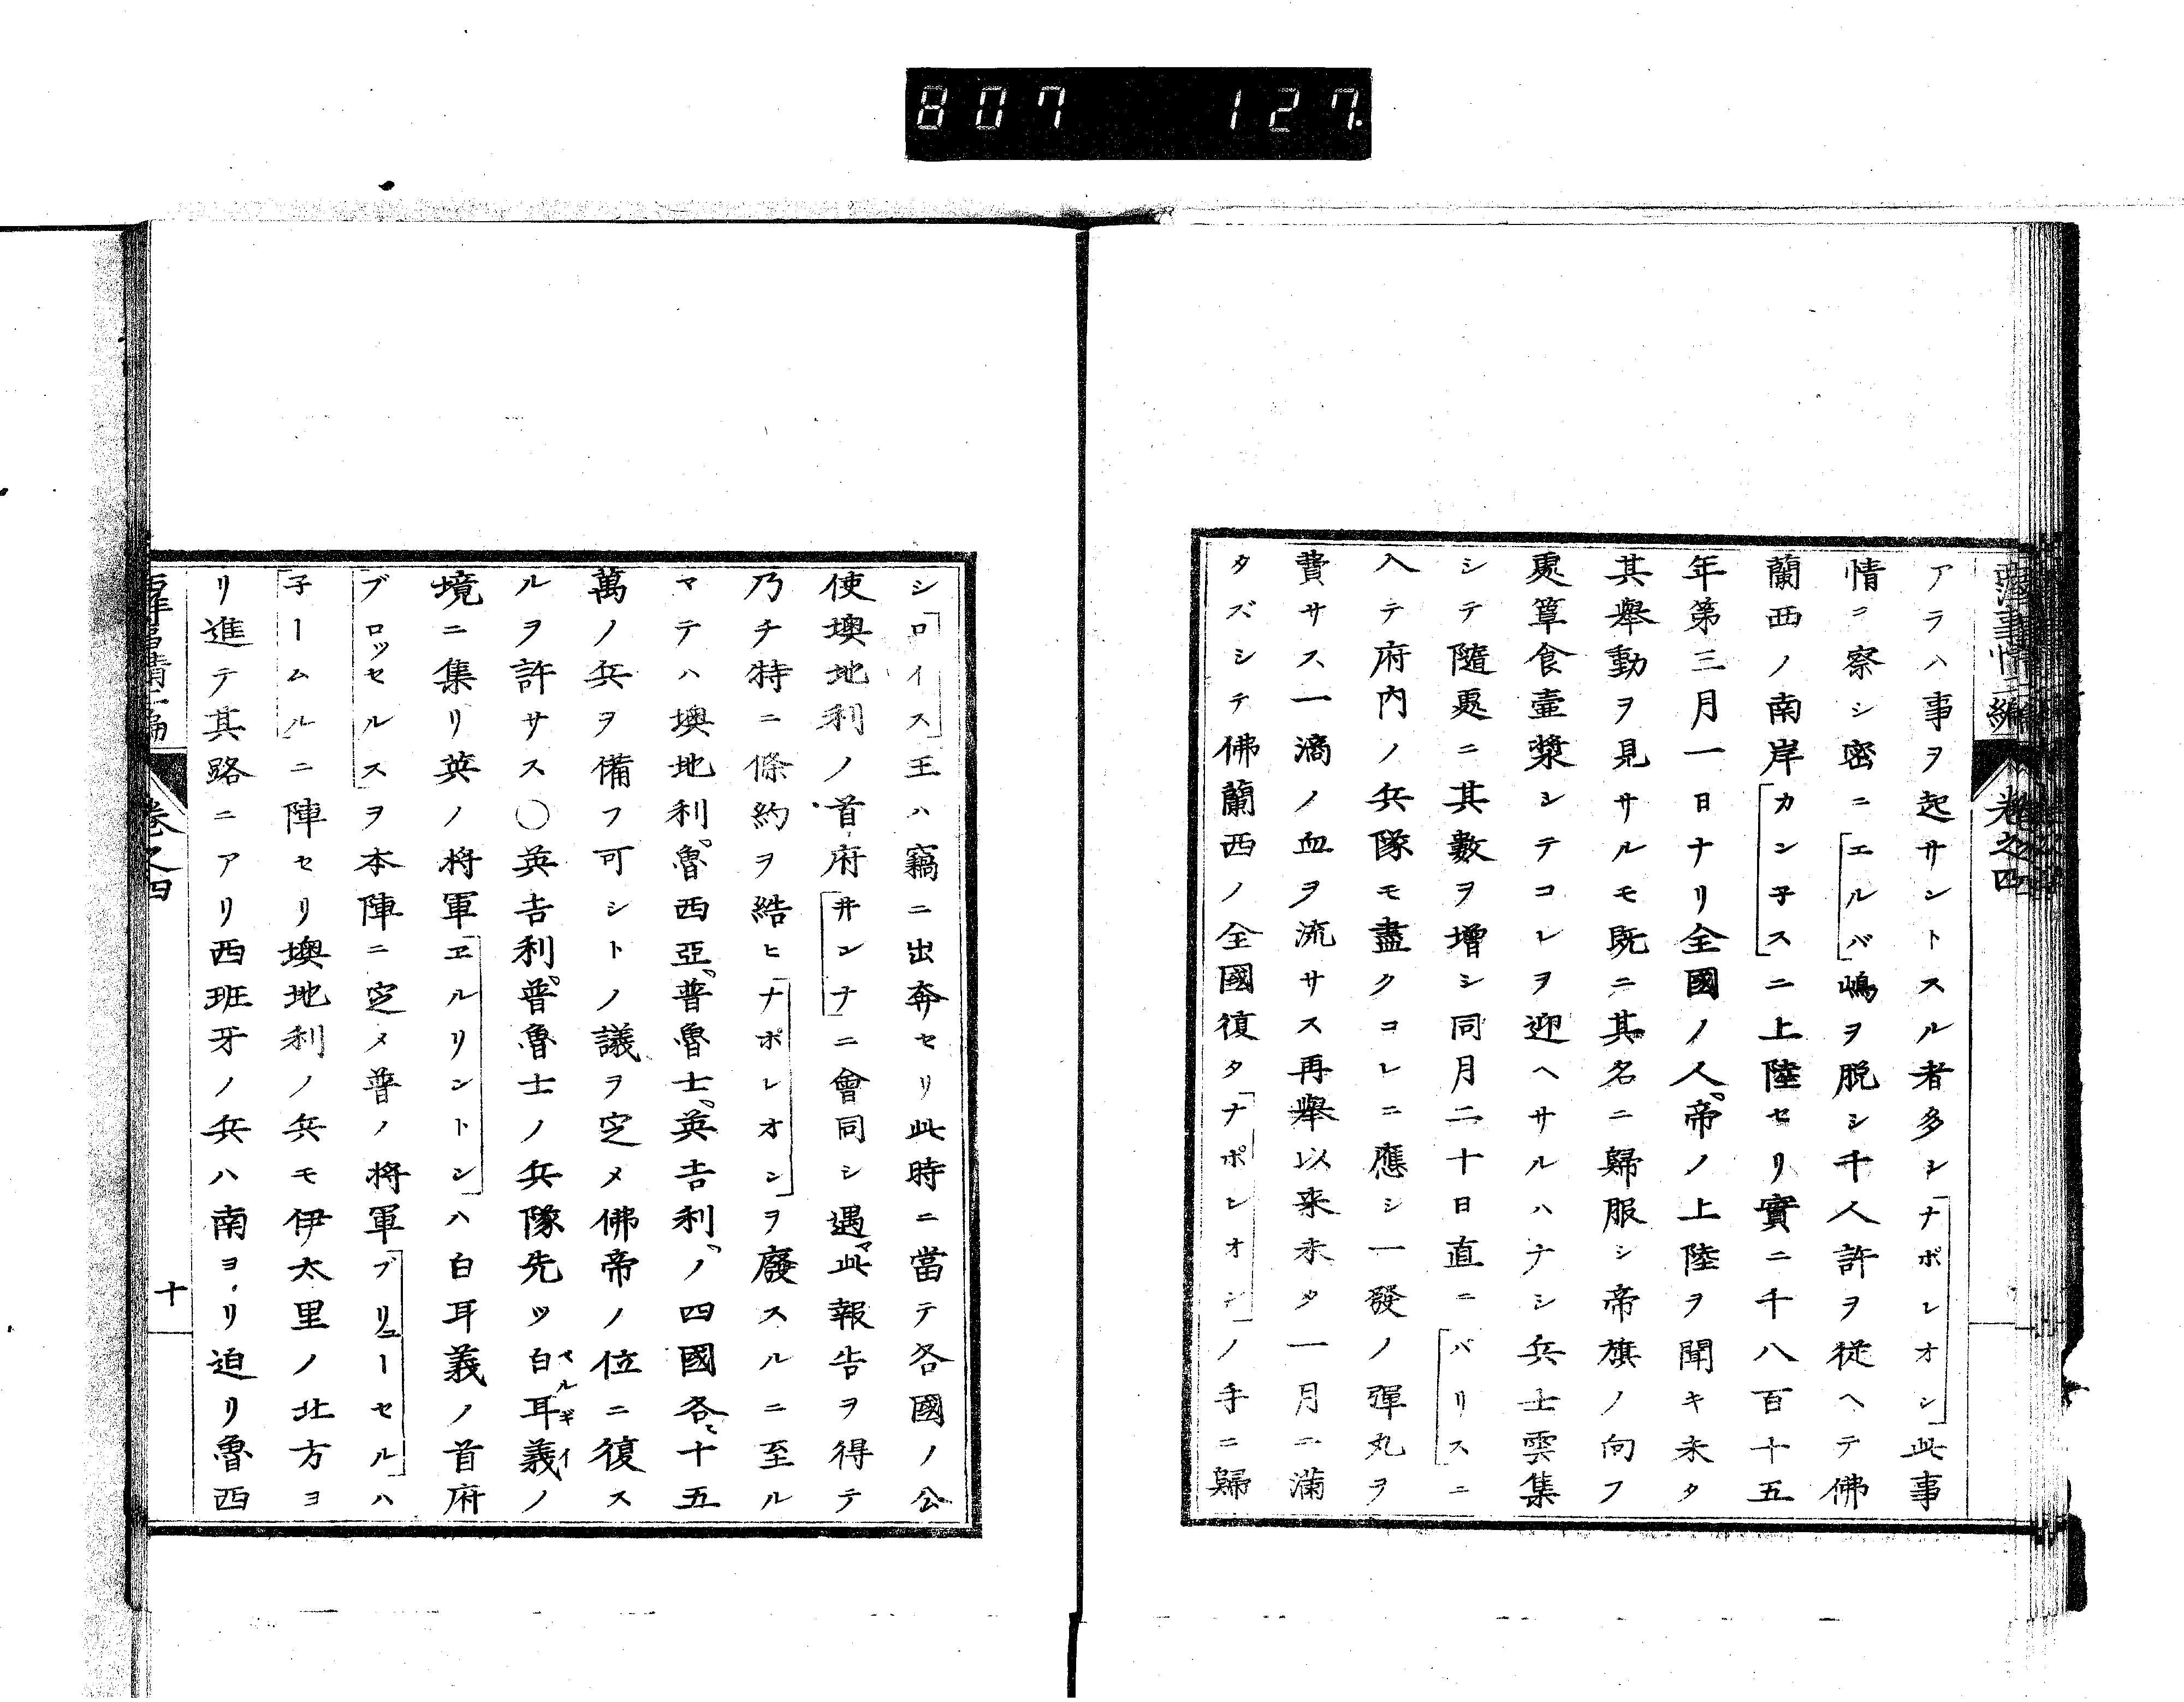 807 127.
西洋事情二編 卷之四
アラハ事ヲ起サントスル者多シ「ナポレオン」此事
情ニ察シ密ニ「エルバ」嶋ヲ脱シ千人許ヲ従ヘテ佛
蘭西ノ南岸「カン子ス」ニ上陸セリ實ニ千八百十五
年第三月一日ナリ全國ノ人帝ノ上陸ヲ聞キ未タ
其擧動ヲ見サルモ既ニ其名ニ歸服シ帝旗ノ向フ
處簞食壷漿シテコレヲ迎ヘサルハナシ兵士雲集
シテ隨處ニ其數ヲ增シ同月二十日直ニ「パリス」ニ
入テ府内ノ兵隊モ盡クコレニ應シ一發ノ彈丸ヲ
費サス一滴ノ血ヲ流サス再擧以来未タ一月ニ滿
タズシテ佛蘭西ノ全國復タ「ナポレオン」ノ手ニ歸
シ「ロイス」王ハ竊ニ出奔セリ此時ニ當テ各國ノ公
使墺地利ノ首府「井ンナ」ニ會同シ遇マ此報告ヲ得テ
乃チ特ニ條約ヲ結ヒ「ナポレオン」ヲ廢スルニ至ル
マテハ墺地利魯西亞普魯士英吉利ノ四國各〻十五
萬ノ兵ヲ備フ可シトノ議ヲ定メ佛帝ノ位ニ復ス
ルヲ許サス〇英吉利普魯士ノ兵隊先ツ白耳義ベルギイノ
境ニ集リ英ノ将軍「ヱルリントン」ハ白耳義ノ首府
「ブロッセルス」ヲ本陣ニ定メ普ノ将軍「ブリューセル」ハ
「子ームル」ニ陣セリ墺地利ノ兵モ伊太里ノ北方ヨ
リ進テ其路ニアリ西班牙ノ兵ハ南ヨリ迫リ魯西
卷之四
十